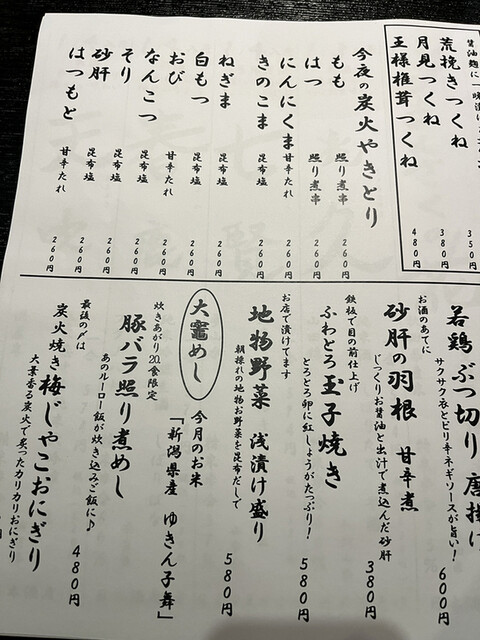 荒挽きつくね 350円
月見つくね 380円
王様椎茸つくね 480円
今夜の炭火やきとり
もも 照り煮串 260円
はつ 照り煮串 260円
にんにくま 甘辛たれ 260円
きのこま 昆布塩 260円
ねぎま 昆布塩 260円
白もつ 昆布塩 260円
おび 甘辛たれ 260円
なんこつ 昆布塩 260円
そり 昆布塩 260円
砂肝 昆布塩 260円
はつもと 甘辛たれ 260円
若鶏ぶつ切り 唐揚げ
サクサク衣とピリ辛ネギソースが旨い！ 600円
お酒のあてに
砂肝の羽根 甘辛煮
じっくりお醤油と出汁で煮込んだ砂肝 380円
鉄板で目の前仕上げ
ふわとろ玉子焼き
とろとろ卵に紅しょうがたっぷり！ 580円
お店で漬けてます
地物野菜 浅漬け盛り
朝採れの地物お野菜を昆布だしで 580円
大竈めし
今月のお米
「新潟県産 ゆきん子舞」
炊きあがり20食限定
豚バラ照り煮めし
あのルーロー飯が炊き込みご飯に♪ 480円
最後の〆は
炭火焼き梅じゃこおにぎり
大葉香る炭火で炙ったカリカリおにぎり